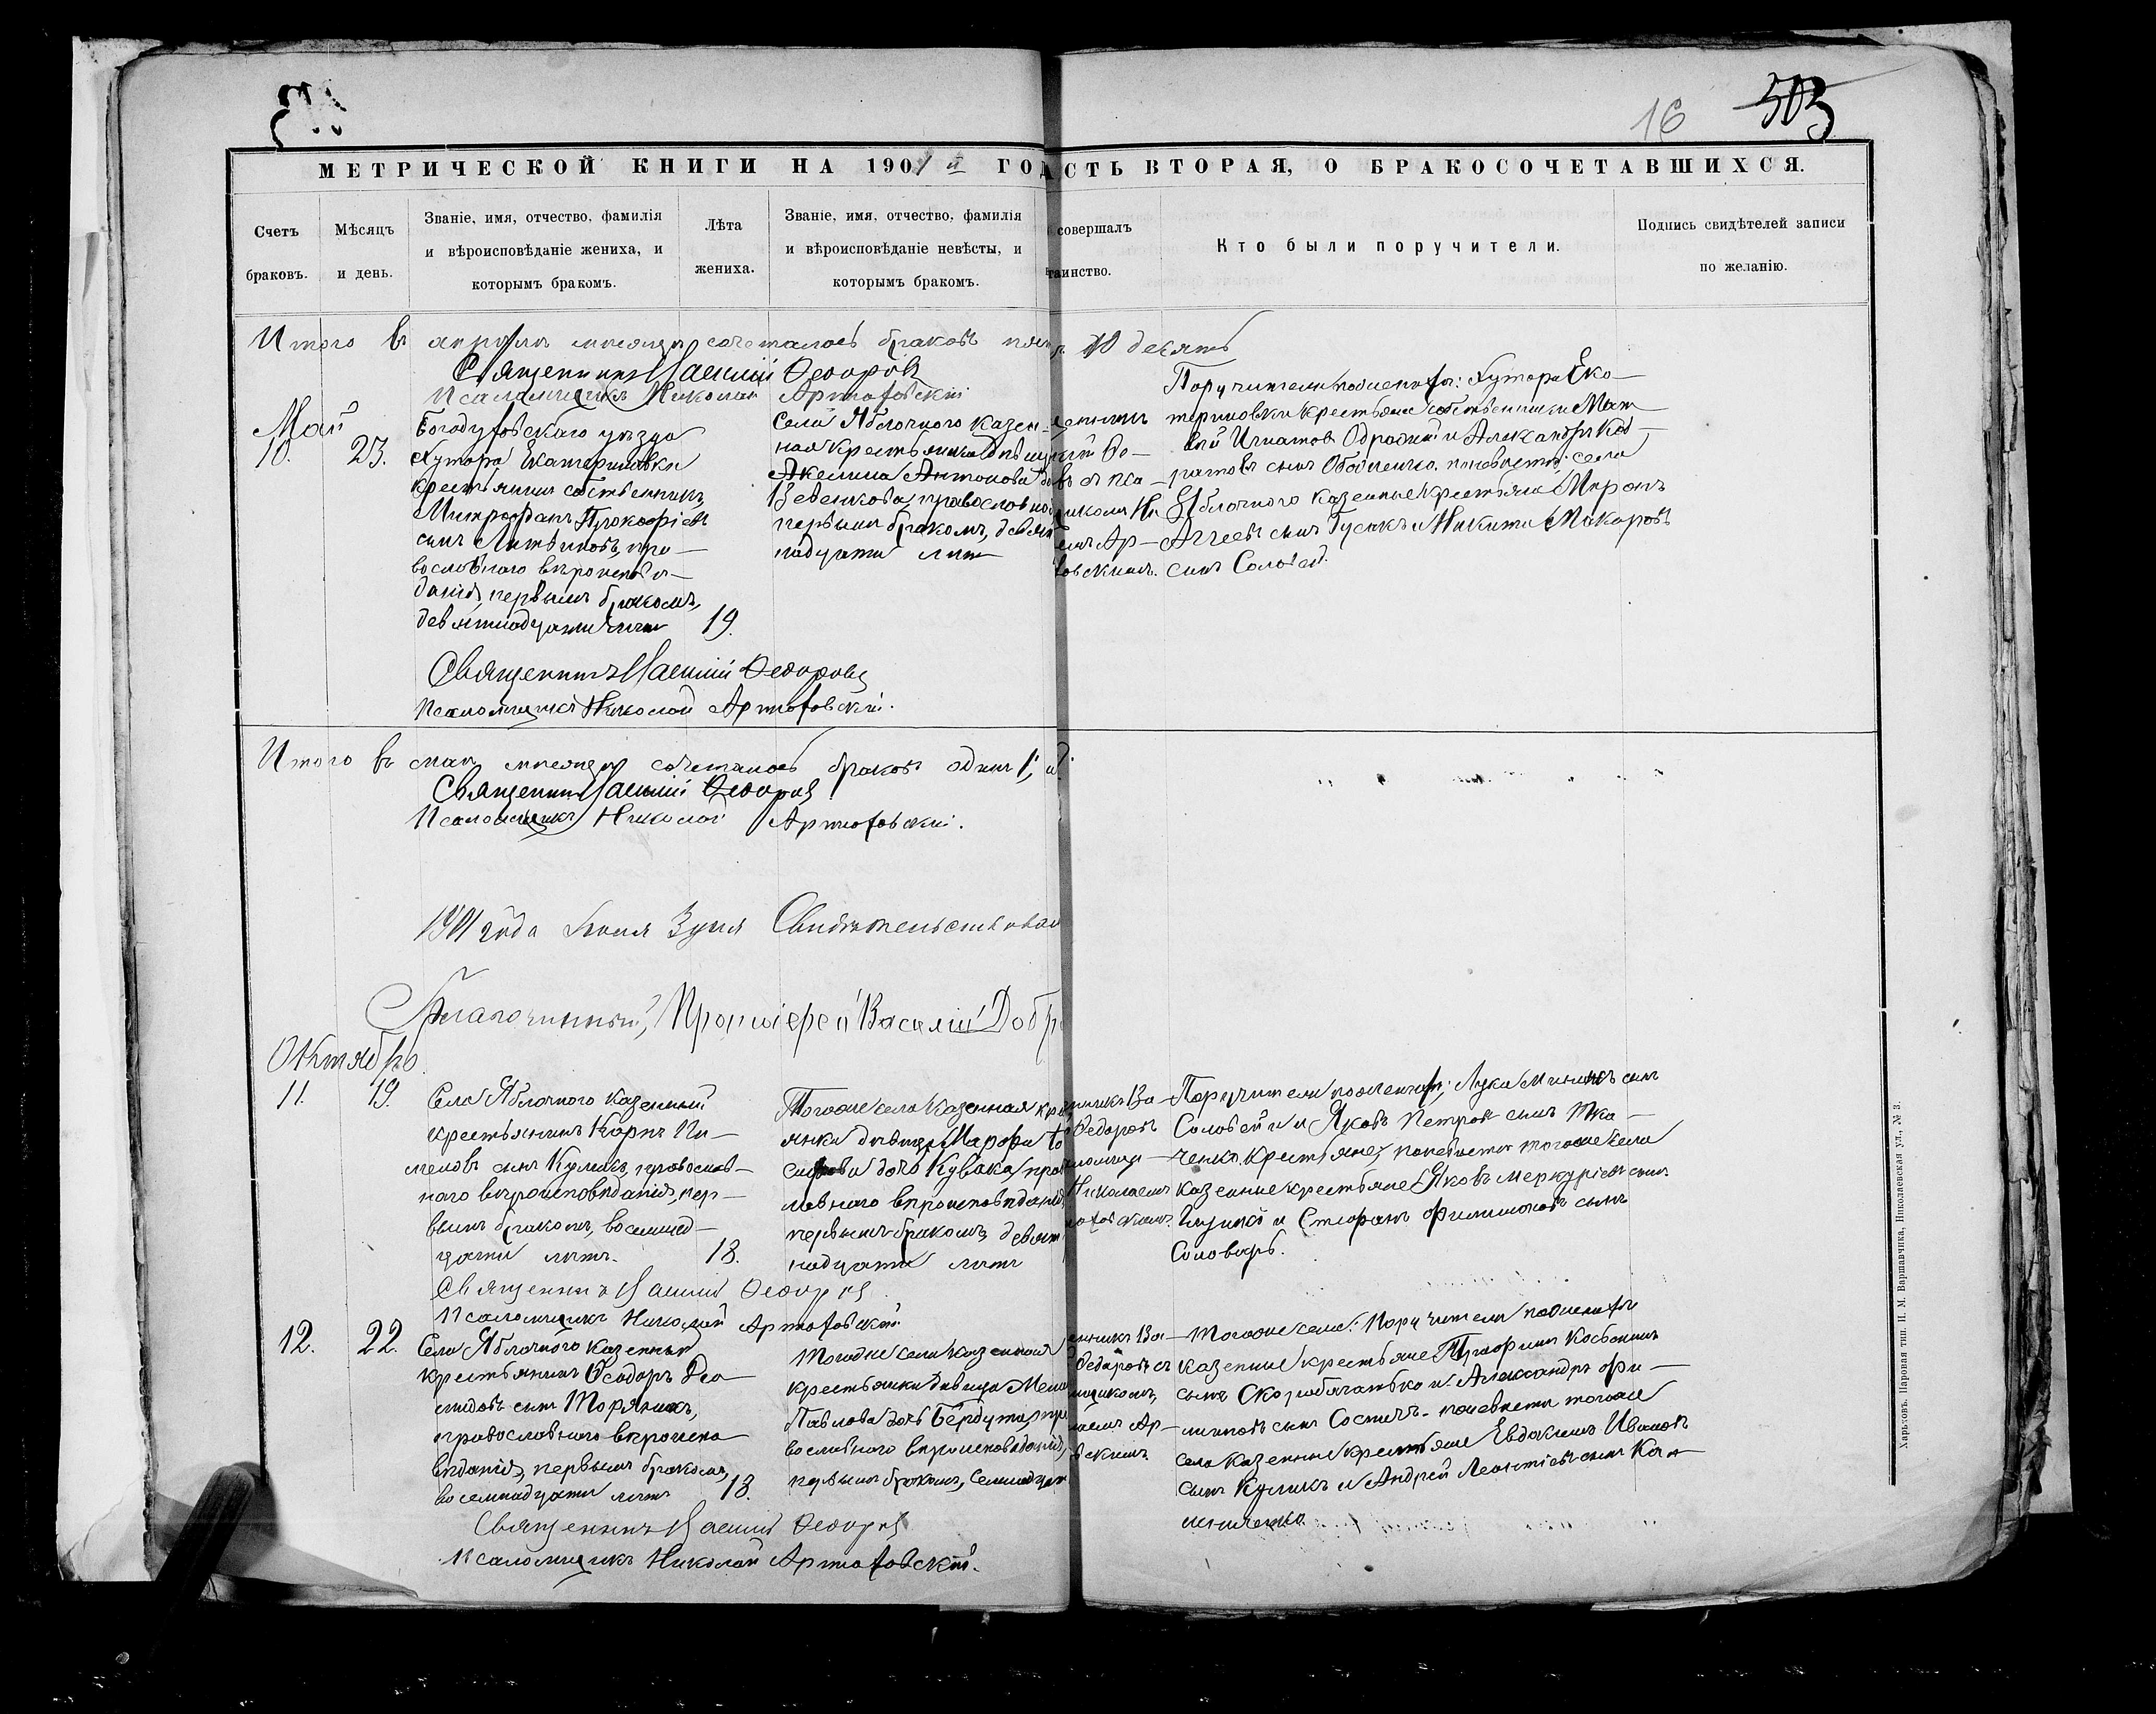 16 503
МЕТРИЧЕСКОЙ КНИГИ НА 1901 й ГОД
АСТЬ ВТОРАЯ, О БРАКОСОЧЕТАВШИХСЯ.
Счетъ браковъ.
Мѣсяцъ и день.
Званіе, имя, отчество, фамилія
и вѣроисповѣданіе жениха, и
которымъ бракомъ.
Лѣта
жениха.
Званіе, имя, отчество, фамилія
и вѣроисповѣданіе невѣсты, и
которымъ бракомъ.
совершалъ
таинство.
Кто были поручители.
Подпись свидѣтелей записи
по желанію.
Итого въ апрѣлѣ мѣсяцѣ сочеталось браковъ
10 десять
Священникъ Василій Ѳеодоровъ
Псаломщикъ Николай Артюховскій
Май
10. 23.
Богодуховскаго уѣзда
хутора Екатериновки
крестьянинъ собственникъ,
Митрофанъ Прокофіевъ
сынъ Литвиновъ, пра-
вославнаго вѣроисповѣ-
данія, первымъ бракомъ,
девятнадцати лѣтъ 19.
Села Яблочного казен-
ная крестьянка дѣвица
Акелина Антонова
Веденкова, православнаго
первымъ бракомъ, девят
надцати лѣтъ
Ѳе-
въ съ пса-
щикомъ Ни
емъ Ар-
ховскимъ.
Поручители по женихѣ: хутора Ека-
териновки крестьяне собственники Мат-
вей Игнатовъ Одра и Александръ Код-
ратовъ сынъ Обо по невѣстѣ; села
Яблочного казенные крестьяне Миронъ
Аггеевъ сынъ Гусакъ и Никита Макаровъ
сынъ Соловей.
Священникъ Василій Ѳеодоровъ
Псаломщикъ Николай Артюховскій.
Итого въ маѣ мѣсяцѣ сочеталось браковъ одинъ 1,
Священникъ Василій Ѳеодоровъ
Псаломщикъ Николай Артюховскій.
1901 года Іюня 3 дня Свидѣтельствовал
Благочинный, Протоіерей Василій Добр
Октябрь.
11. 19.
Села Яблочного казенный
крестьянинъ Карпъ Пи-
меновъ сынъ Куликъ, православ-
наго вѣроисповѣданія, пер-
вымъ бракомъ, восемнад-
цати лѣтъ. 18.
Тогоже села казенная кре
янка дѣвица Марфа
дочь Кувака, прав
лавнаго вѣроисповѣданія
первымъ бракомъ, девят
надцати лѣтъ
нникъ Ва-
Ѳедоровъ
ломщи-
Николаемъ
юховскимъ.
Поручители по женихѣ; Лука сынъ
Соловей и Яковъ Петровъ сынъ Тка-
ченко. крестьяне, по невѣстѣ тогоже села
казенные крестьяне Яковъ Меркуріевъ сынъ
и Стефанъ Филимоновъ сынъ
Соловарь.
Священникъ Василій Ѳеодоровъ
Псаломщикъ Николай Артюховскій
12. 22.
Села Яблочного казенный
крестьянинъ Ѳеодоръ Лео
нидовъ сынъ Торяникъ,
православнаго вѣроиспо
вѣданія, первымъ бракомъ,
восемнадцати лѣтъ 18.
Тогоже села казенная
крестьянка дѣвица Мел
Павлова дочь Бердута, пра
вославнаго вѣроисповѣданія,
первымъ бракомъ, семнадцат
енникъ Ва-
Ѳедоровъ съ
мщикомъ,
лаемъ Ар-
вскимъ.
Тогоже села: Поручители по женихѣ
казенные крестьяне Трофимъ Косьминъ
сынъ и Александръ Фи-
липповъ сынъ Состичъ. по невѣстѣ тогоже
села казенные крестьяне Евдокимъ Ивановъ
сынъ Куликъ и Андрей Леонтіевъ сынъ Кал-
ниченко.
Священникъ Василій Ѳеодоровъ
Псаломщикъ Николай Артюховскій.
Харьковъ. Паровая тип. И. М. Варшавчика, Николаевская ул., № 3.